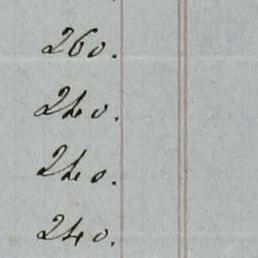 260.
240.
240.
240.